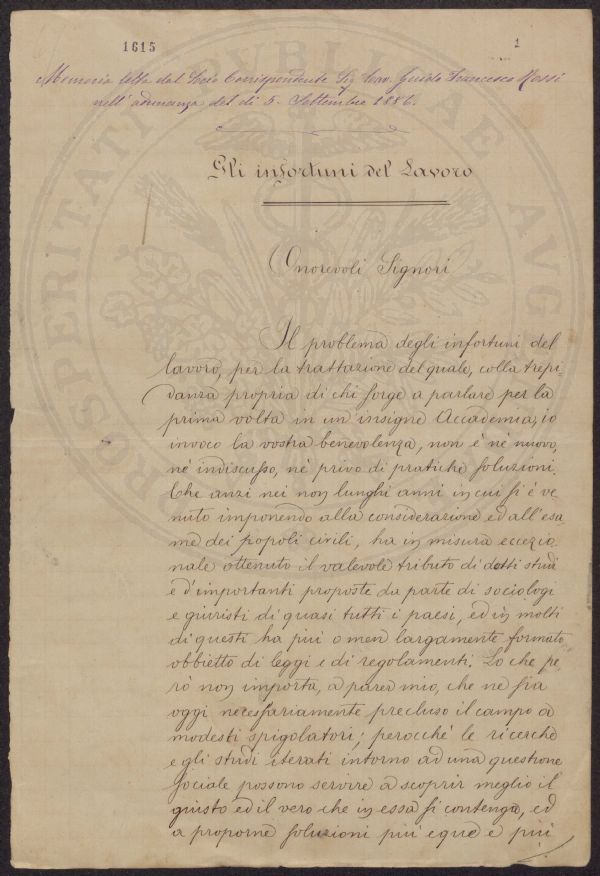 1615
1
Memoria letta dal Socio Corrispondente Sig. Avv. Guido Francesco Rossi
nell'adunanza del dì 5. Settembre 1886.
Gli infortuni del Lavoro
Onorevoli Signori
Il problema degli infortuni del
lavoro, per la trattazione del quale, colla trepi-
danza propria di chi sorge a parlare per la
prima volta in un'insigne Accademia, io
invoco la vostra benevolenza, non è nè nuovo,
nè indiscusso, nè privo di pratiche soluzioni.
Che anzi nei non lunghi anni in cui si è ve-
nuto imponendo alla considerazione ed all'esa-
me dei popoli civili, ha in misura eccezio-
nale ottenuto il valevole tributo di dotti studi
e d'importanti proposte da parte di sociologi
e giuristi di quasi tutti i paesi, ed in molti
di questi ha più o men largamente formato
obbietto di leggi e di regolamenti. Lo che pe-
rò non importa, a parer mio, che ne sia
oggi necessariamente precluso il campo a
modesti spigolatori; perocchè le ricerche
e gli studi iterati intorno ad una questione
sociale possono servire a scoprir meglio il
giusto ed il vero che in essa si contenga, ed
a proporne soluzioni più eque e più
PROSPERITATI PUBLICAE AUG